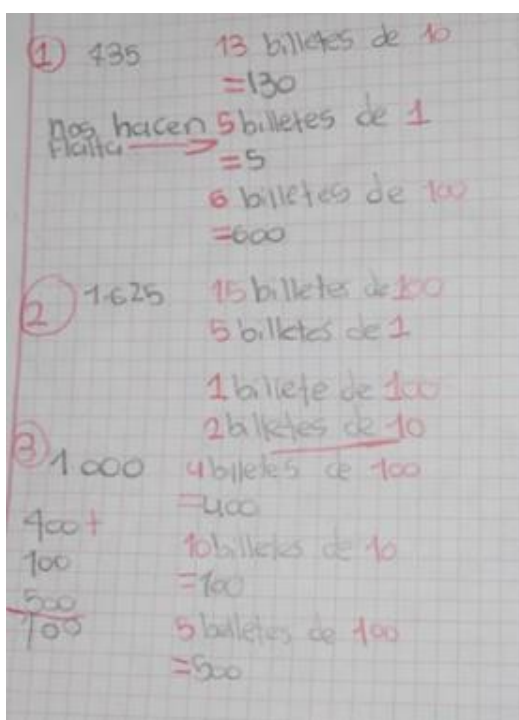 1 735 13 billetes de 10
=130
nos hacen 5 billetes de 1
falta =5
6 billetes de 100
=600
2 1.625 15 billetes de 100
5 billetes de 1
1 billete de 100
2 billetes de 10
3 1.000 4 billetes de 100
=400
400+ 10 billetes de 10
100 =100
500 5 billetes de 100
100 =500